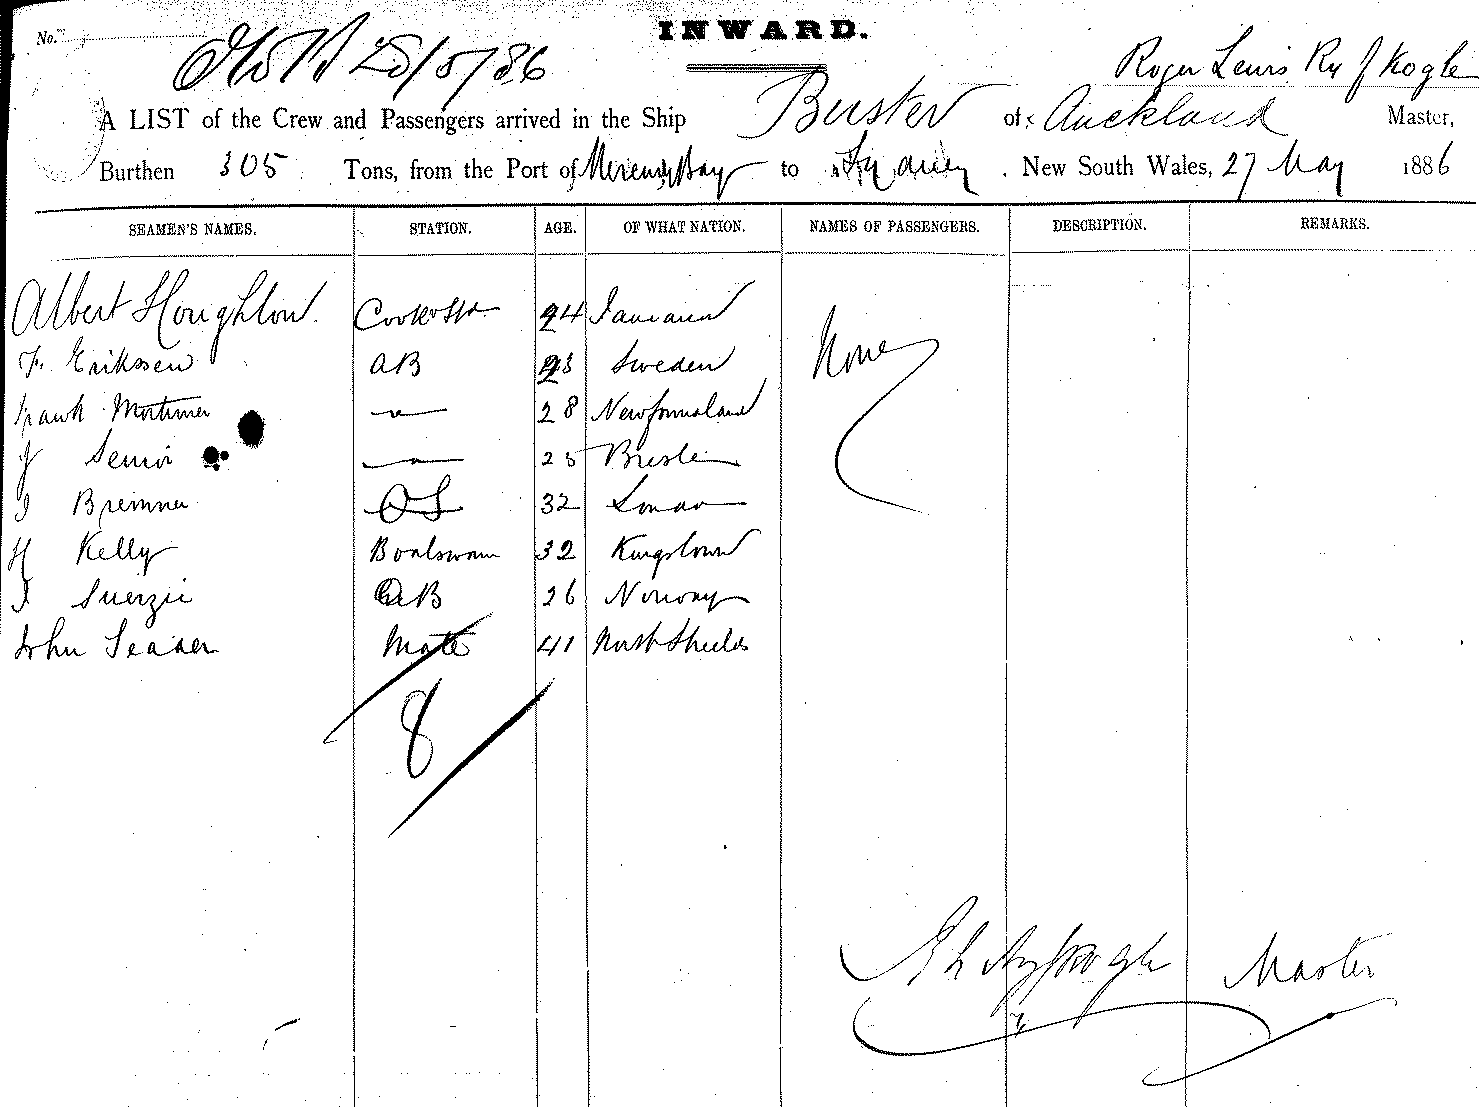 No.
INWARD.
25/5/86
Roger Lewis
A LIST of the Crew and Passengers arrived in the Ship Buster of Auckland Master,
Burthen 305 Tons, from the Port of Mercury Bay to Sydney. New South Wales, 27 May 1886
SEAMEN'S NAMES. STATION. AGE. OF WHAT NATION. NAMES OF PASSENGERS. DESCRIPTION. REMARKS.
Albert Houghton. 24 None
F. Eriksson AB Sweden
Frank Mortimer 28
J Senior 25
J Bremner OS 32
H Kelly Boatswain 32 Kingstown
J AB 26 Norway
John Mate 41 North Shields
8
Master